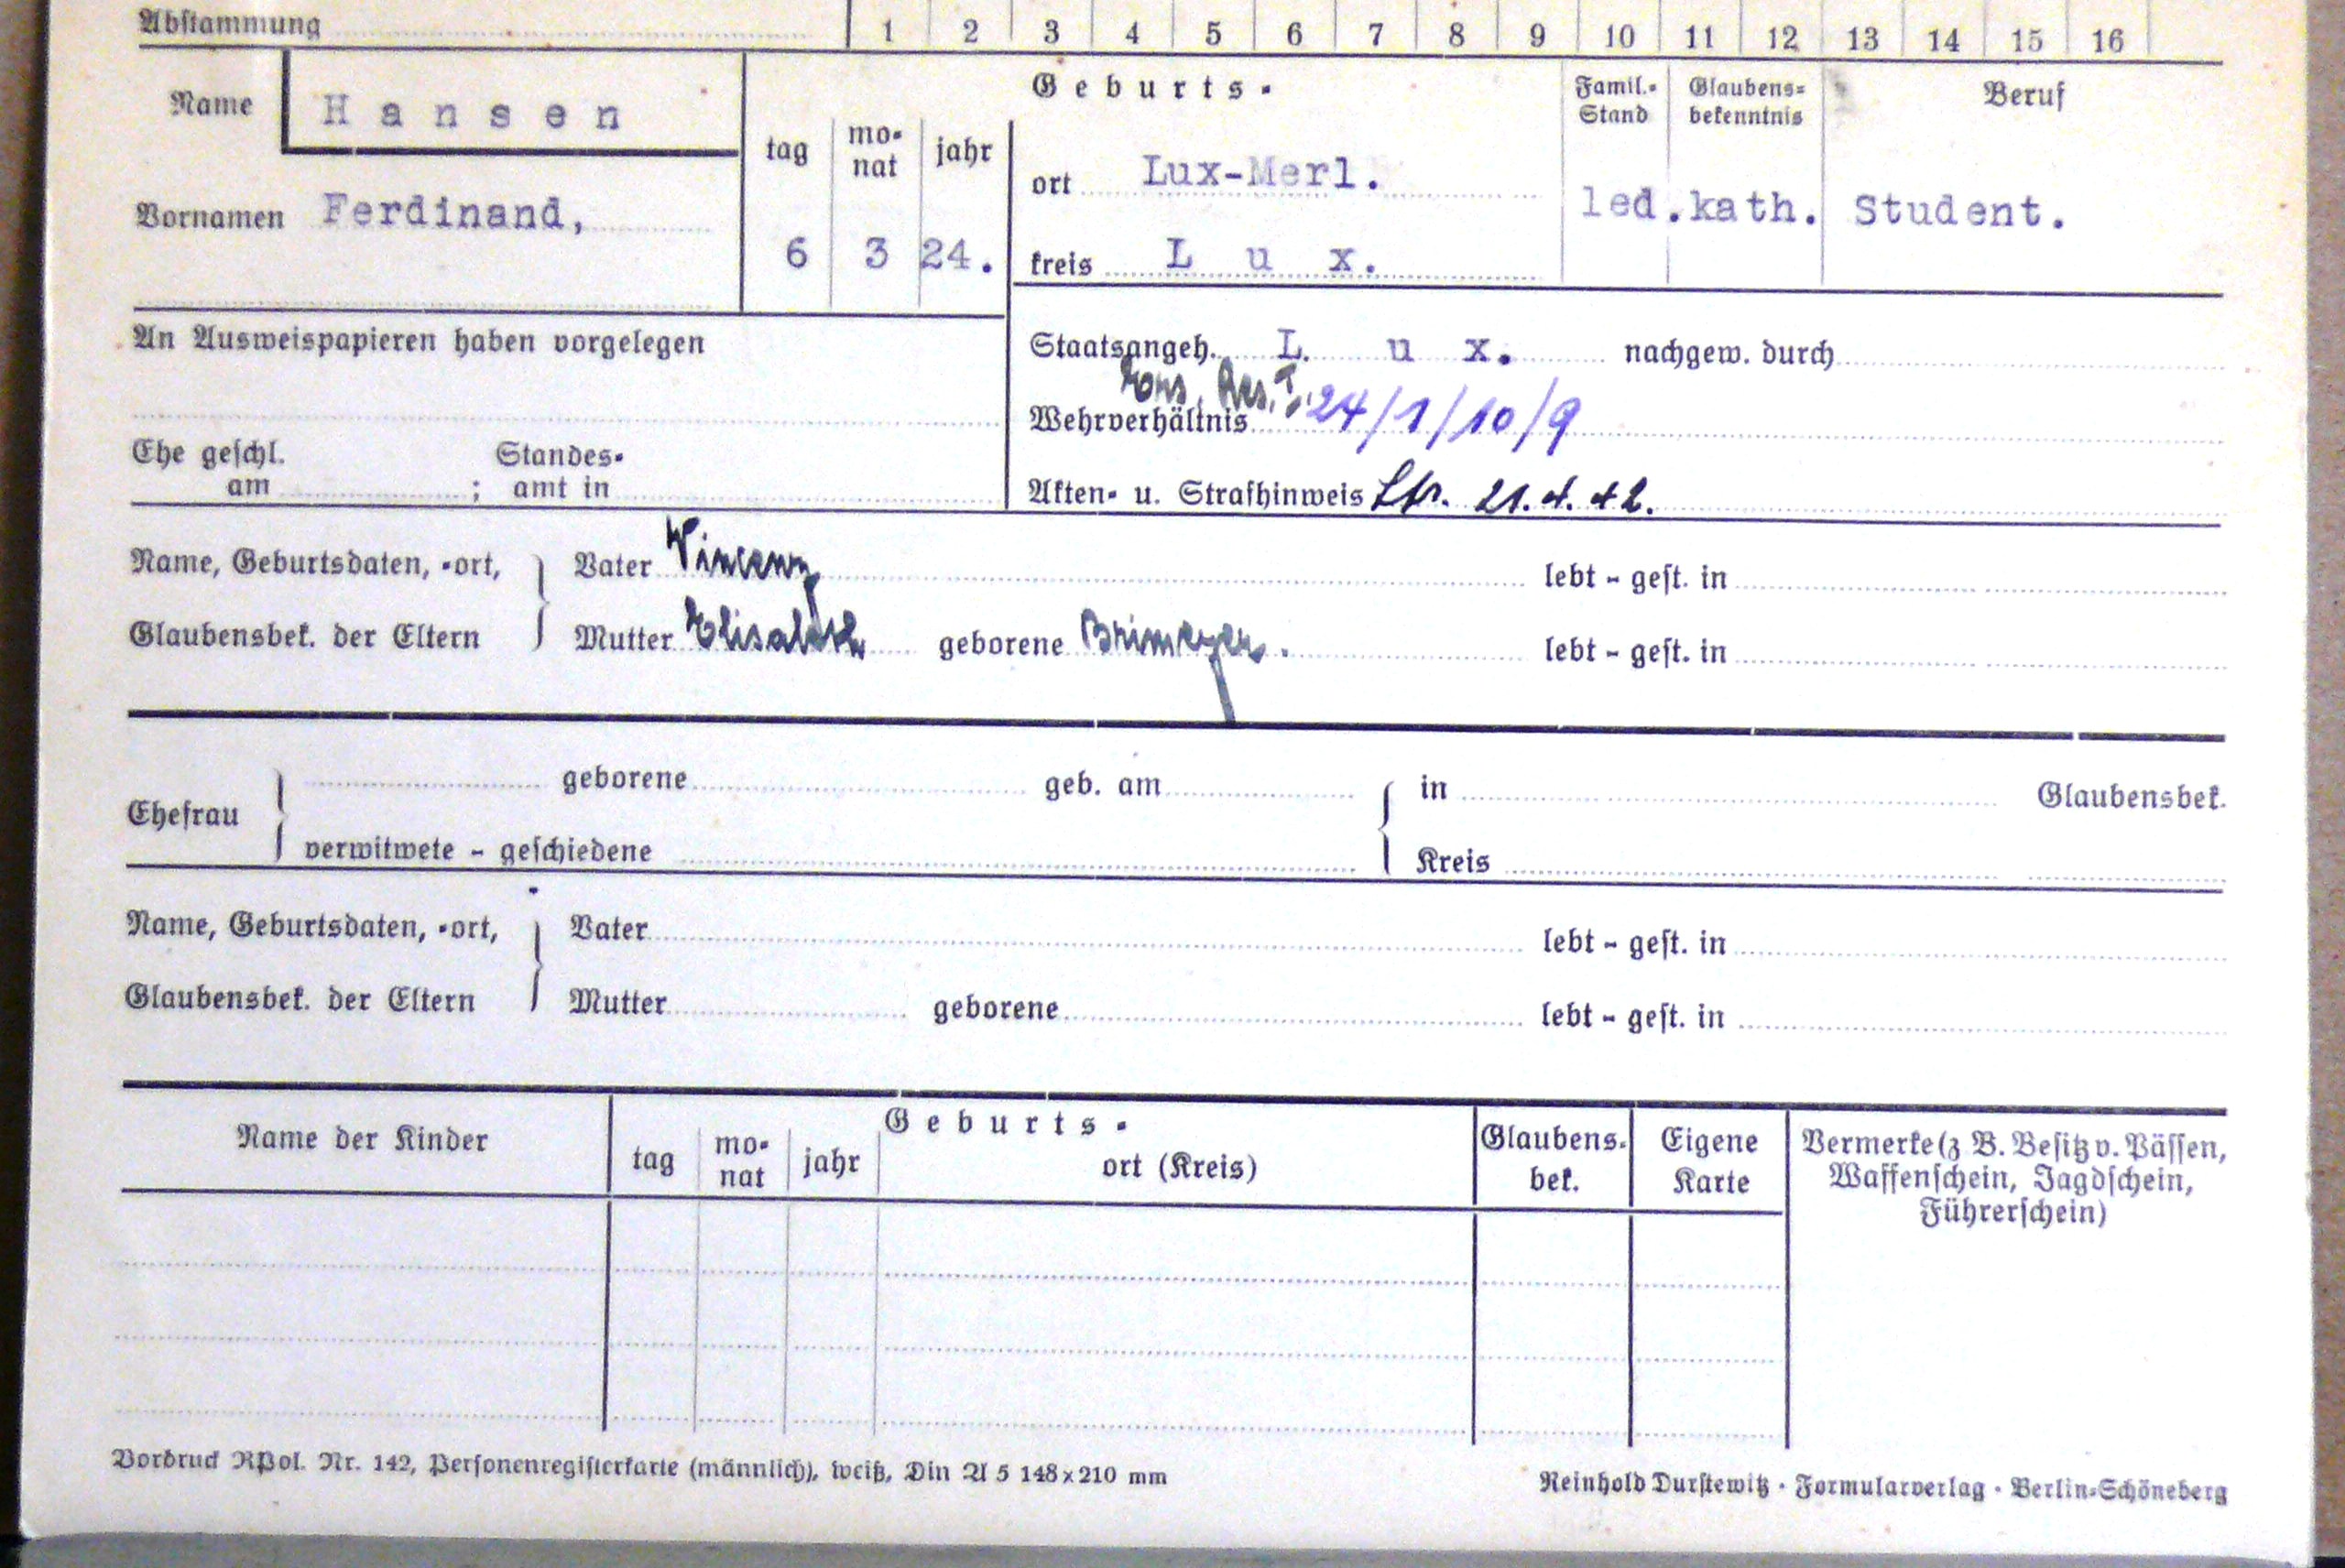 Abstammung 1 2 3 4 5 6 7 8 9 10 11 12 13 14 15 16
Name H a n s e n
Vornamen Ferdinand,
Geburts-
tag mo-nat jahr
6 3 24.
ort Lux-Merl.
kreis L u x.
Famil.-Stand
led.
Glaubens-bekenntnis
kath.
Beruf
Student.
An Ausweispapieren haben vorgelegen
Staatsangeh. L u x. nachgew. durch
Ers. Res. I.
Wehrverhältnis 24/1/10/9
Ehe geschl. am ; Standes-amt in
Akten- u. Strafhinweis 21.4.42.
Name, Geburtsdaten, -ort, Vater Vincenz lebt - gest. in
Glaubensbek. der Eltern Mutter Elisabeth geborene Brimeyer. lebt - gest. in
Ehefrau geborene geb. am in Glaubensbek.
verwitwete - geschiedene Kreis
Name, Geburtsdaten, -ort, Vater lebt - gest. in
Glaubensbek. der Eltern Mutter geborene lebt - gest. in
Name der Kinder
Geburts-
tag mo-nat jahr ort (Kreis)
Glaubens-bek.
Eigene Karte
Vermerke (z B. Besitz v. Pässen,
Waffenschein, Jagdschein,
Führerschein)
Vordruck RPol. Nr. 142, Personenregisterkarte (männlich), weiß, Din A 5 148×210 mm
Reinhold Durstewitz · Formularverlag · Berlin-Schöneberg